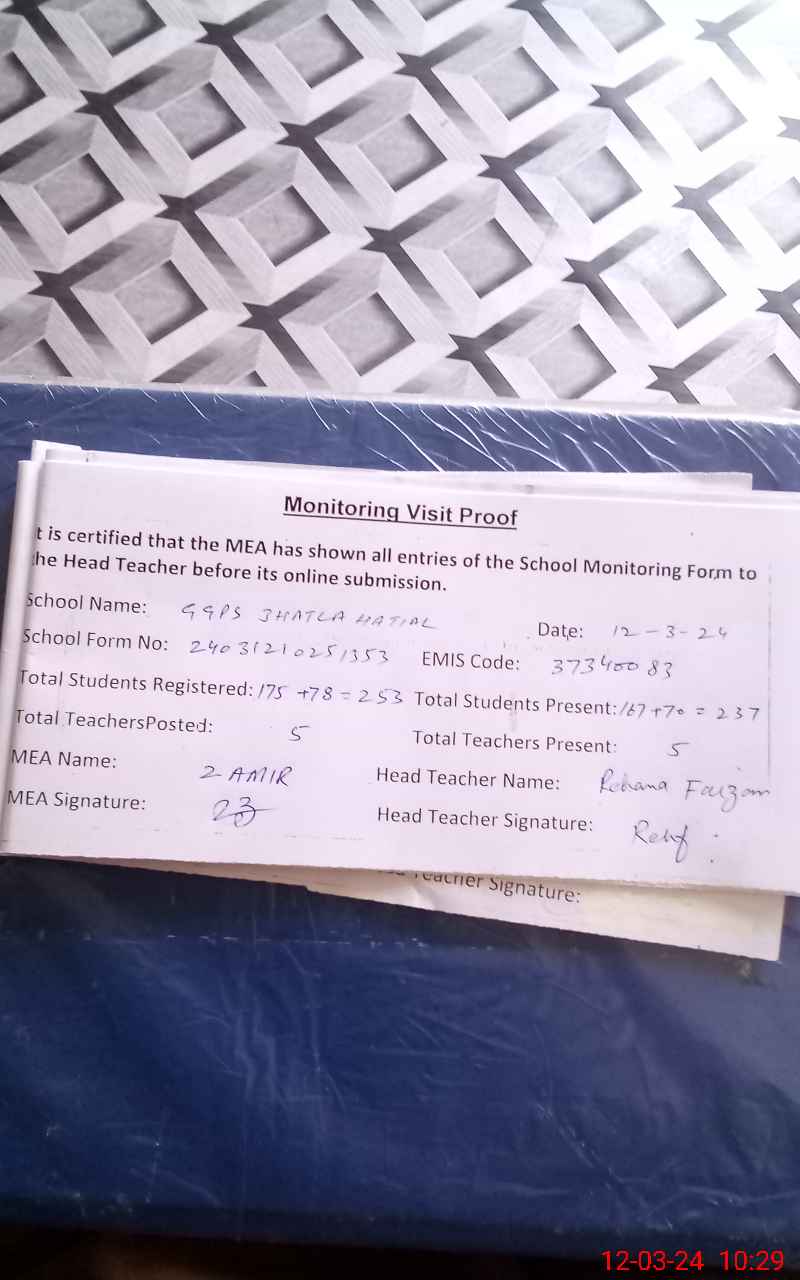 Monitoring Visit Proof
t is certified that the MEA has shown all entries of the School Monitoring Form to
he Head Teacher before its online submission.
School Name: GGPS BHATLA HATIAL Date: 12-3-24
School Form No: 24031210251353 EMIS Code: 37340083
Total Students Registered: 175 +78 = 253 Total Students Present: 167+70 = 237
Total TeachersPosted: 5 Total Teachers Present: 5
MEA Name: Z AMIR Head Teacher Name: Rehana
MEA Signature: Head Teacher Signature:
Teacher Signature:
12-03-24 10:29